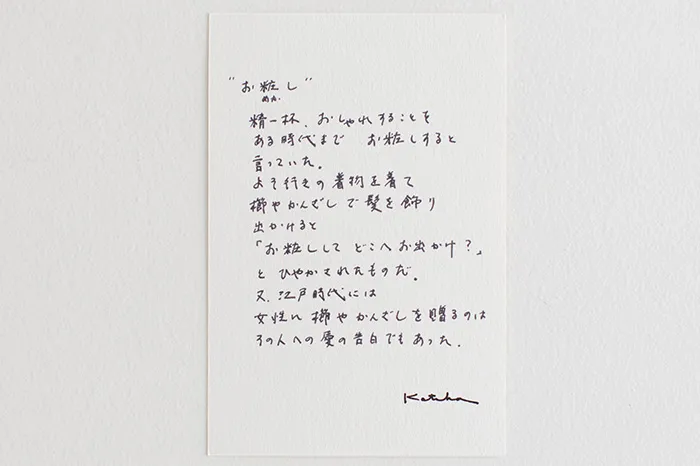 "お粧し"
めか
精一杯、おしゃれすることを
ある時代まで お粧しすると
言っていた。
よそ行きの着物を着て
櫛やかんざしで髪を飾り
出かけると
「お粧しして どこへお出かけ?」
と ひやかされたものだ。
又、江戸時代には
女性に櫛やかんざしを贈るのは
その人への愛の告白でもあった。